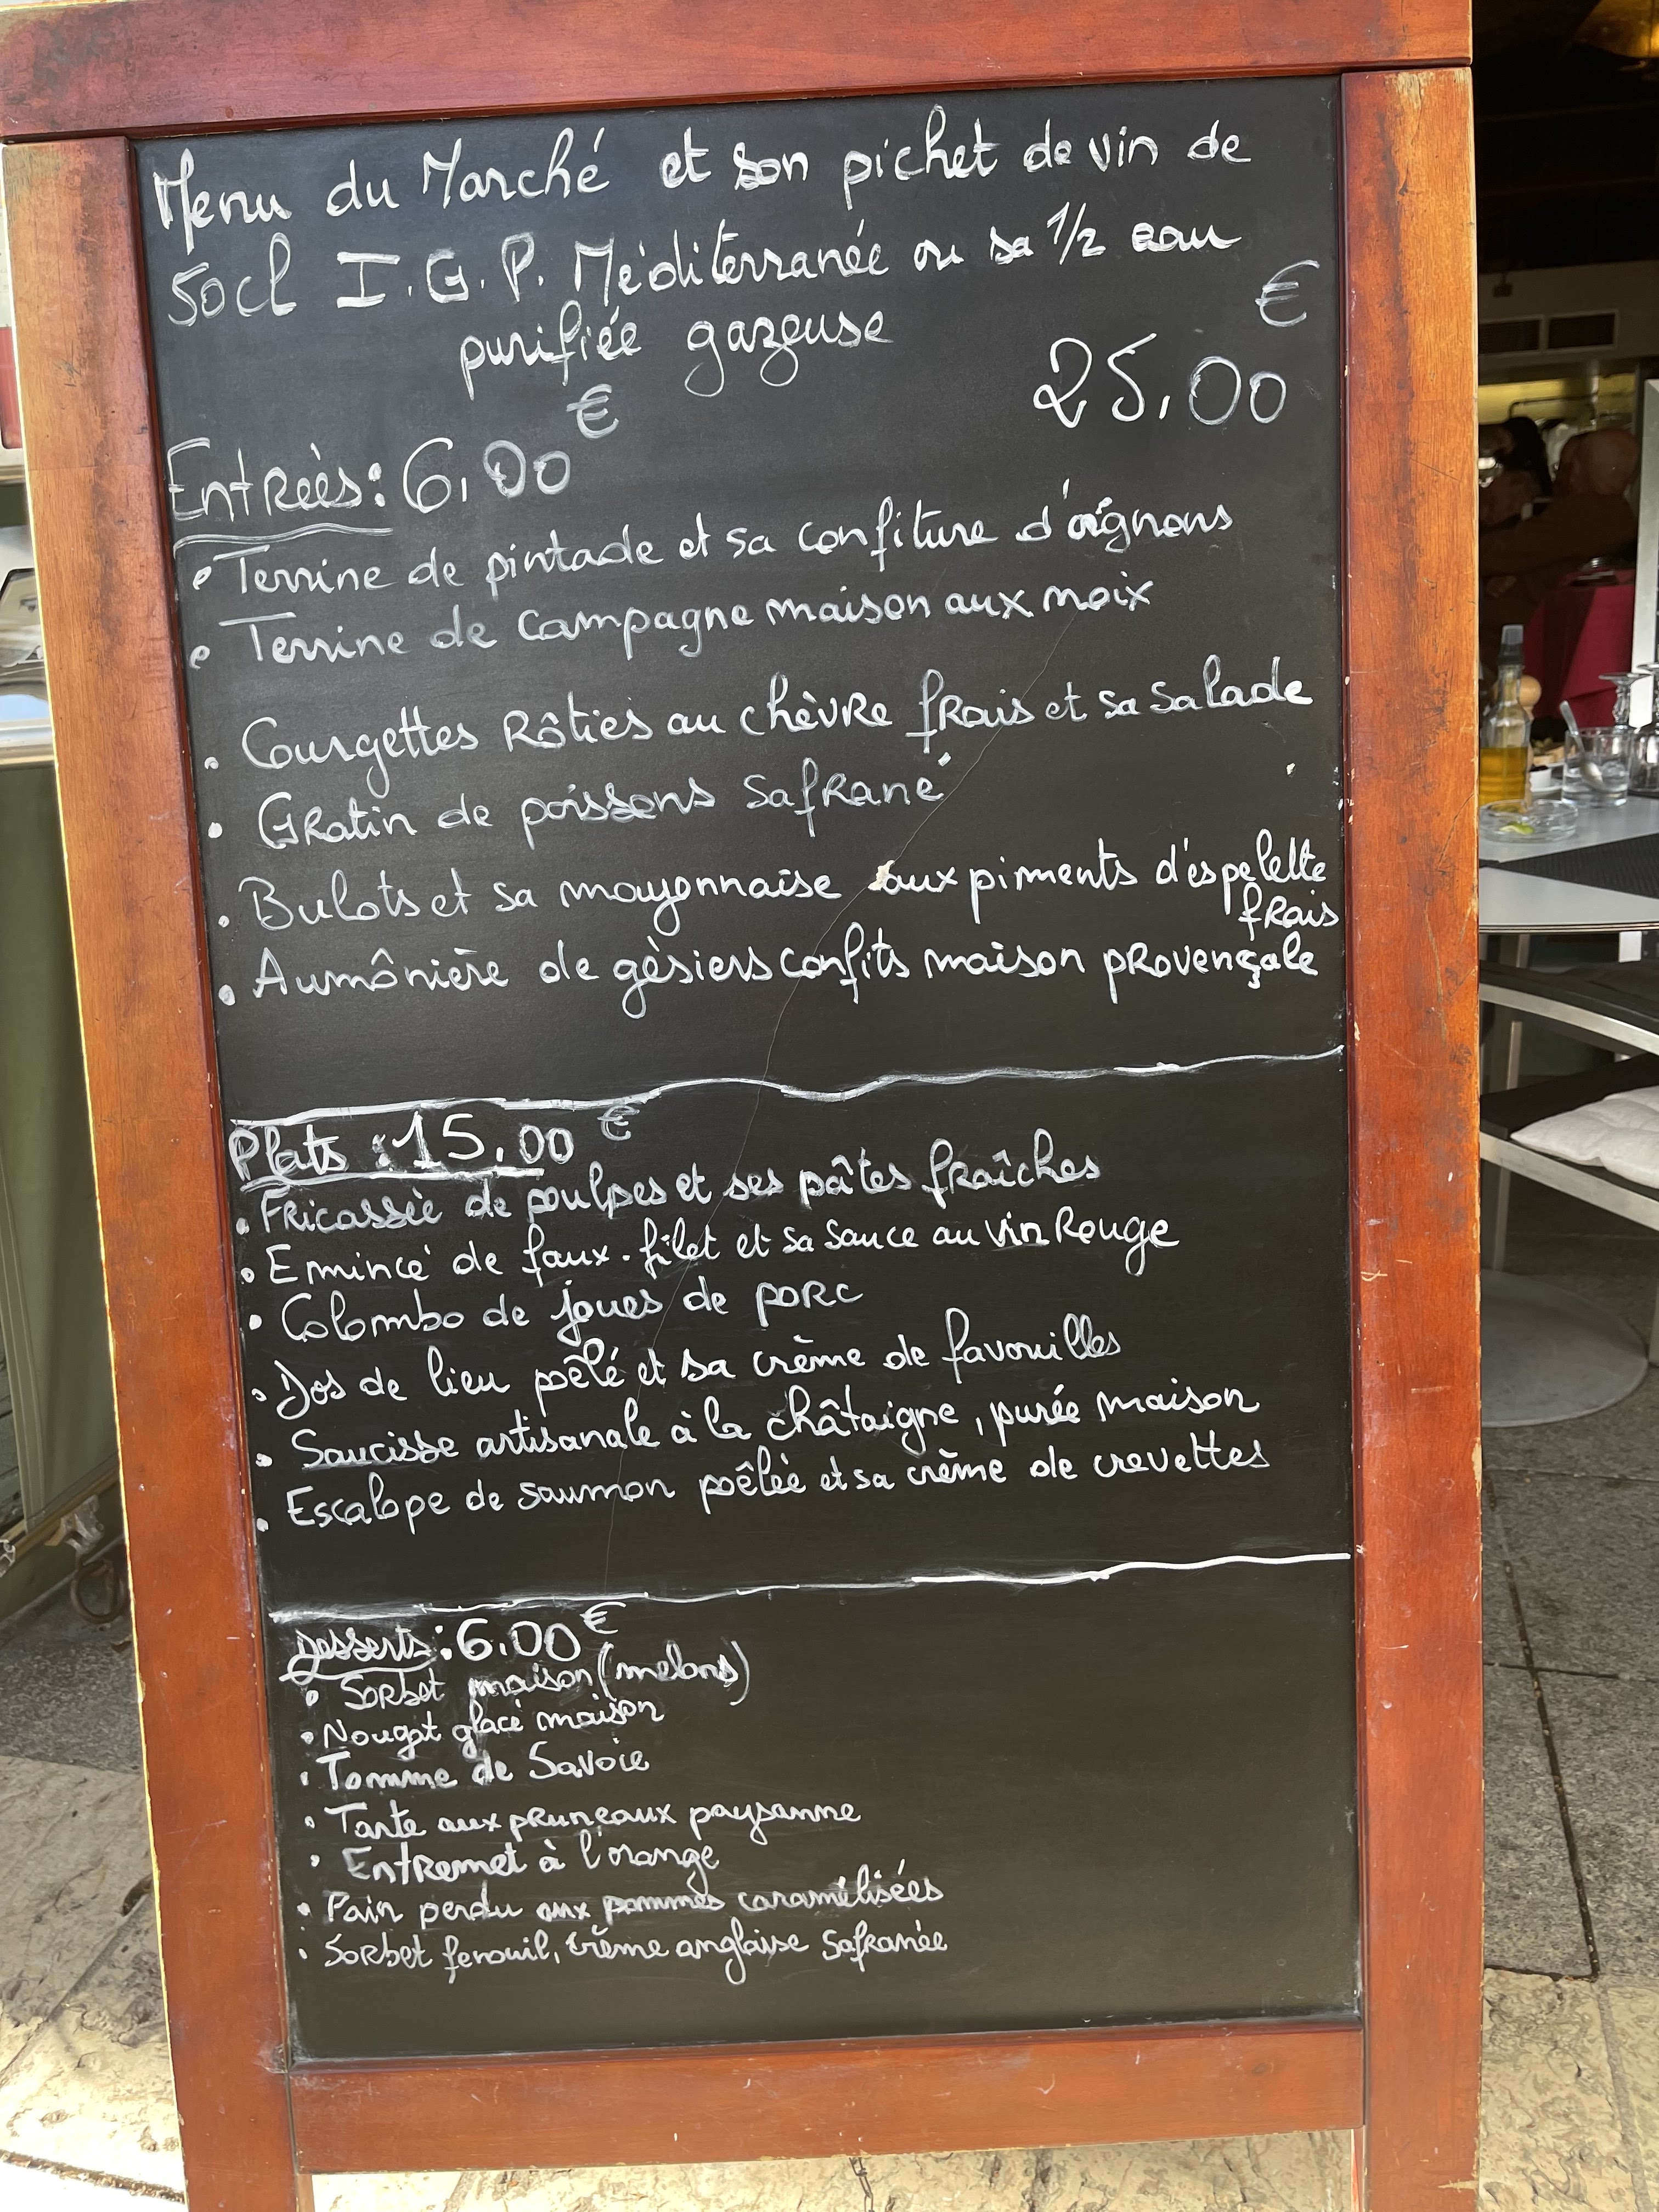 Menu du Marché et son pichet de vin de
50cl I.G.P. Méditerranée ou sa 1/2 eau
purifiée gazeuse
€
25,00
Entrées: 6,00 €
• Terrine de pintade et sa confiture d'oignons
• Terrine de Campagne maison aux noix
• Courgettes Rôties au chèvre frais et sa salade
• Gratin de poissons Safrané
• Bulots et sa mayonnaise aux piments d'espelette
frais
• Aumônière de gésiers confits maison provençale
Plats : 15,00 €
• Fricassée de poulpes et ses pâtes fraîches
• Emincé de faux-filet et sa sauce au vin Rouge
• Colombo de joues de porc
• Dos de lieu pôêlé et sa crème de favouilles
• Saucisse artisanale à la châtaigne, purée maison
• Escalope de saumon poêlée et sa crème de crevettes
Desserts : 6.00 €
• Sorbet maison (melons)
• Nougat glacé maison
• Tomme de Savoie
• Tarte aux pruneaux paysanne
• Entremet à l'orange
• Pain perdu aux pommes caramélisées
• Sorbet fenouil, crème anglaise Safranée